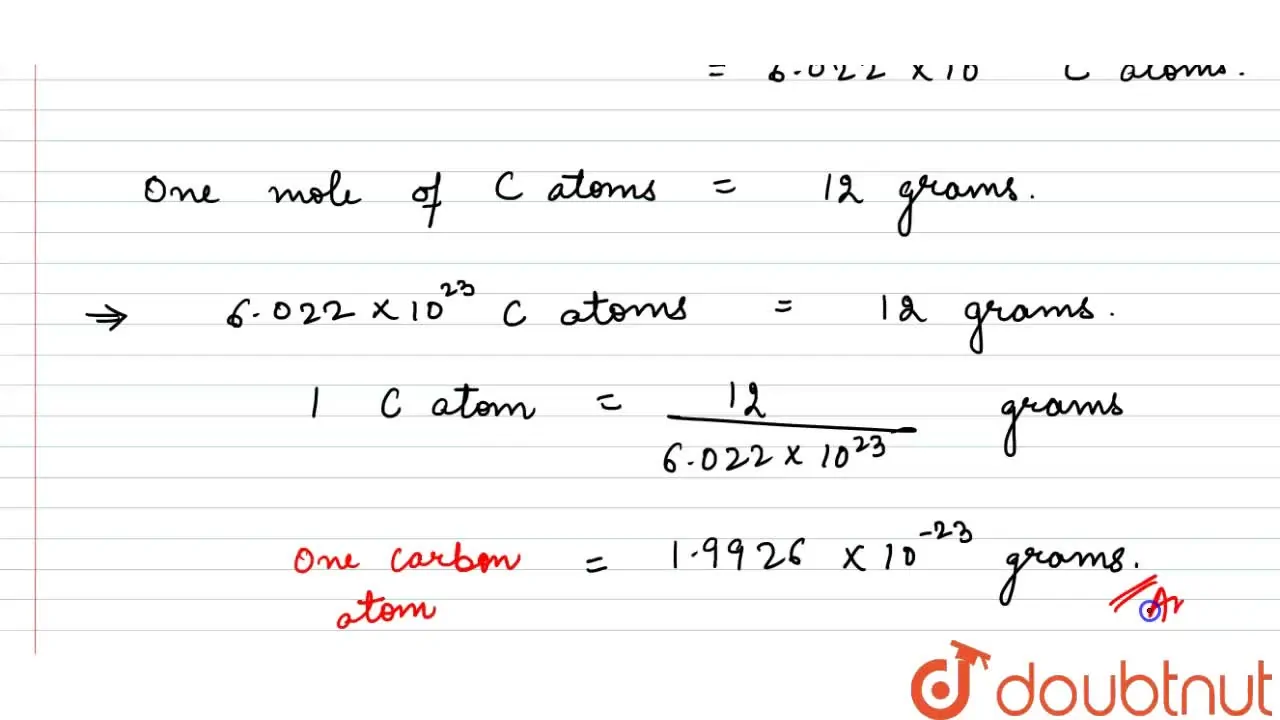 = 6.022 × 10 C atoms.
One mole of C atoms = 12 grams.
⇒ 6.022 × 10²³ C atoms = 12 grams.
1 C atom = 12 / 6.022 × 10²³ grams
One carbon atom = 1.9926 × 10⁻²³ grams.
doubtnut